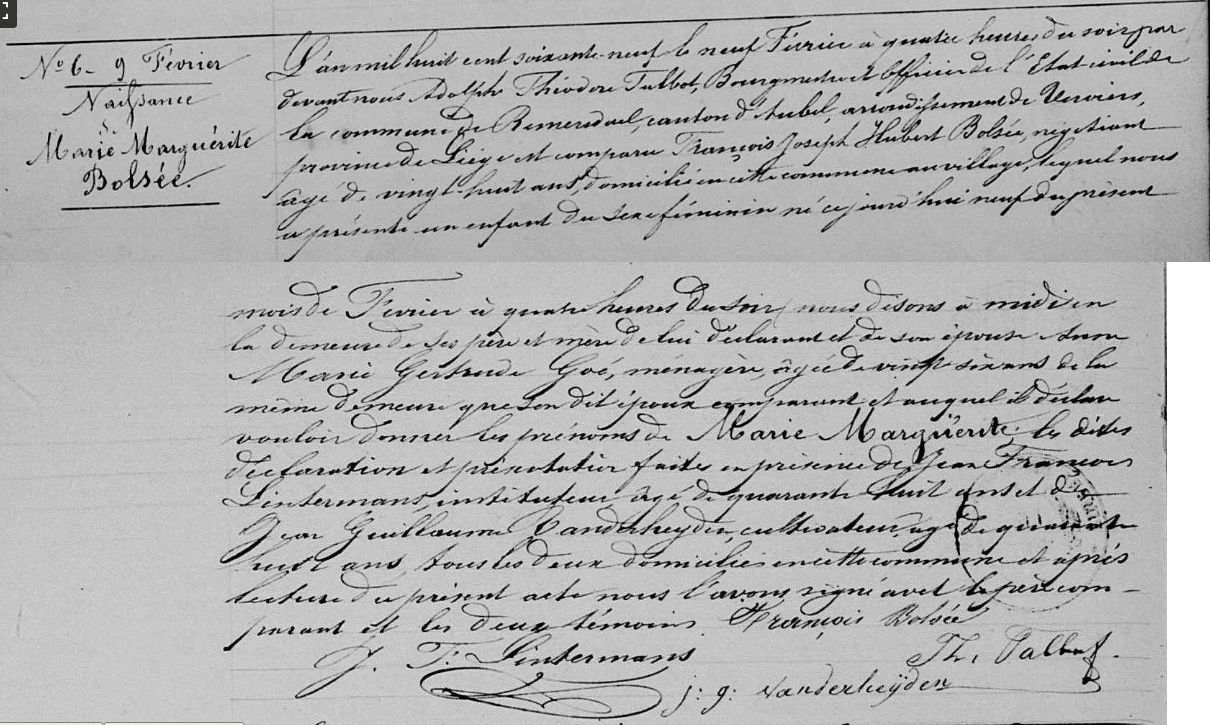 No 6 - 9 Février
Naissance
de
Marie Marguérite
Bolsée.
L'an mil huit cent soixante-neuf le neuf Février à quatre heures du soir par
devant nous Adolph Théodore Talbot, Bourgmestre et Officier de l'Etat civil de
la commune de Remersdael, canton d'Aubel, arrondissement de Verviers,
province de Liége est comparu François Joseph Hubert Bolsée, négotiant
âgé de vingt-huit ans, domicilié en cette commune au village, lequel nous
a présenté un enfant du sexe féminin né ce jourd'hui neuf du présent
mois de Février à quatre heures du soir, nous disons à midi en
la demeure de ses père et mère de lui déclarant et de son épouse Anna
Marie Gertrude Goé, ménagère, âgée de vingt six ans de la
même demeure que son dit époux comparant et auquel il déclare
vouloir donner les prénoms de Marie Margüerite, les dites
déclaration et présentation faites en présence de Jean François
Lintermans, instituteur âgé de quarante huit ans et de
Jean Guillaume Vanderheyden, cultivateur, âgé de quarante
huit ans, tous les deux domiciliés en cette commune et après
lecture du présent acte nous l'avons signé avec le père com-
parant et les deux témoins. François Bolsée
J. F. Lintermans Th. Talbot.
j: g: Vanderheyden